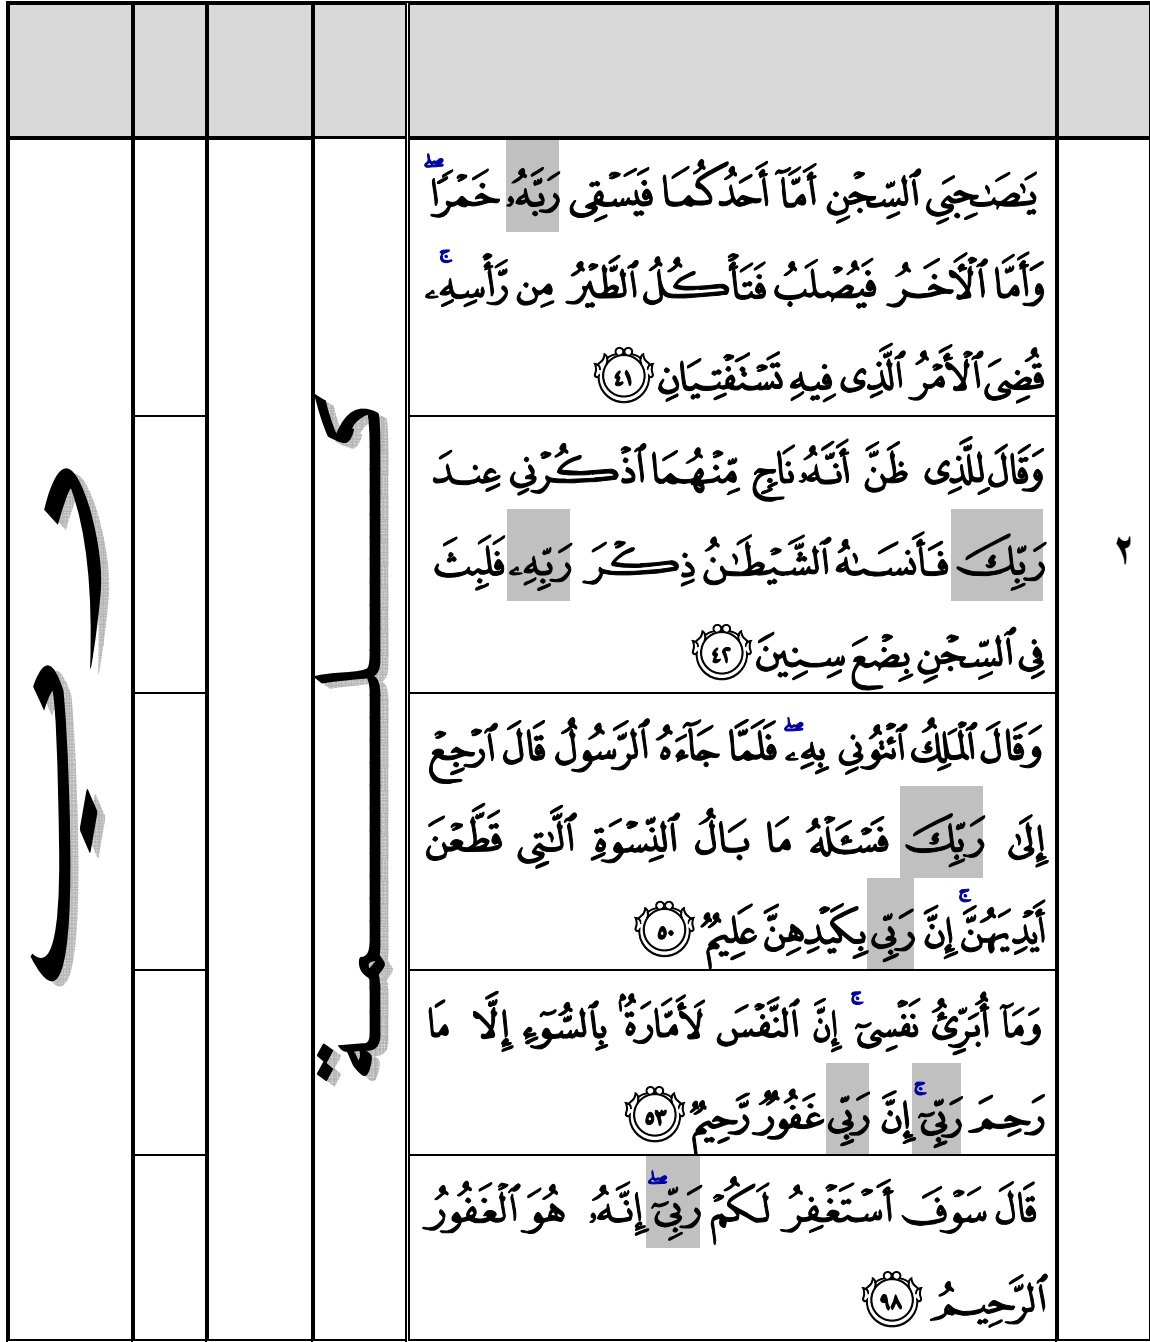 ٢
يَٰصَٰحِبَىِ ٱلسِّجْنِ أَمَّآ أَحَدُكُمَا فَيَسْقِى رَبَّهُۥ خَمْرًا ۖ
وَأَمَّا ٱلْأَخَرُ فَيُصْلَبُ فَتَأْكُلُ ٱلطَّيْرُ مِن رَّأْسِهِۦ ۚ
قُضِىَ ٱلْأَمْرُ ٱلَّذِى فِيهِ تَسْتَفْتِيَانِ ٤١
وَقَالَ لِلَّذِى ظَنَّ أَنَّهُۥ نَاجٍ مِّنْهُمَا ٱذْكُرْنِى عِندَ
رَبِّكَ فَأَنسَىٰهُ ٱلشَّيْطَٰنُ ذِكْرَ رَبِّهِۦ فَلَبِثَ
فِى ٱلسِّجْنِ بِضْعَ سِنِينَ ٤٢
وَقَالَ ٱلْمَلِكُ ٱئْتُونِى بِهِۦ ۖ فَلَمَّا جَآءَهُ ٱلرَّسُولُ قَالَ ٱرْجِعْ
إِلَىٰ رَبِّكَ فَسْـَٔلْهُ مَا بَالُ ٱلنِّسْوَةِ ٱلَّٰتِى قَطَّعْنَ
أَيْدِيَهُنَّ ۚ إِنَّ رَبِّى بِكَيْدِهِنَّ عَلِيمٌ ٥٠
وَمَآ أُبَرِّئُ نَفْسِىٓ ۚ إِنَّ ٱلنَّفْسَ لَأَمَّارَةٌۢ بِٱلسُّوٓءِ إِلَّا مَا
رَحِمَ رَبِّىٓ ۚ إِنَّ رَبِّى غَفُورٌ رَّحِيمٌ ٥٣
قَالَ سَوْفَ أَسْتَغْفِرُ لَكُمْ رَبِّىٓ ۖ إِنَّهُۥ هُوَ ٱلْغَفُورُ
ٱلرَّحِيمُ ٩٨
كلمة
رب